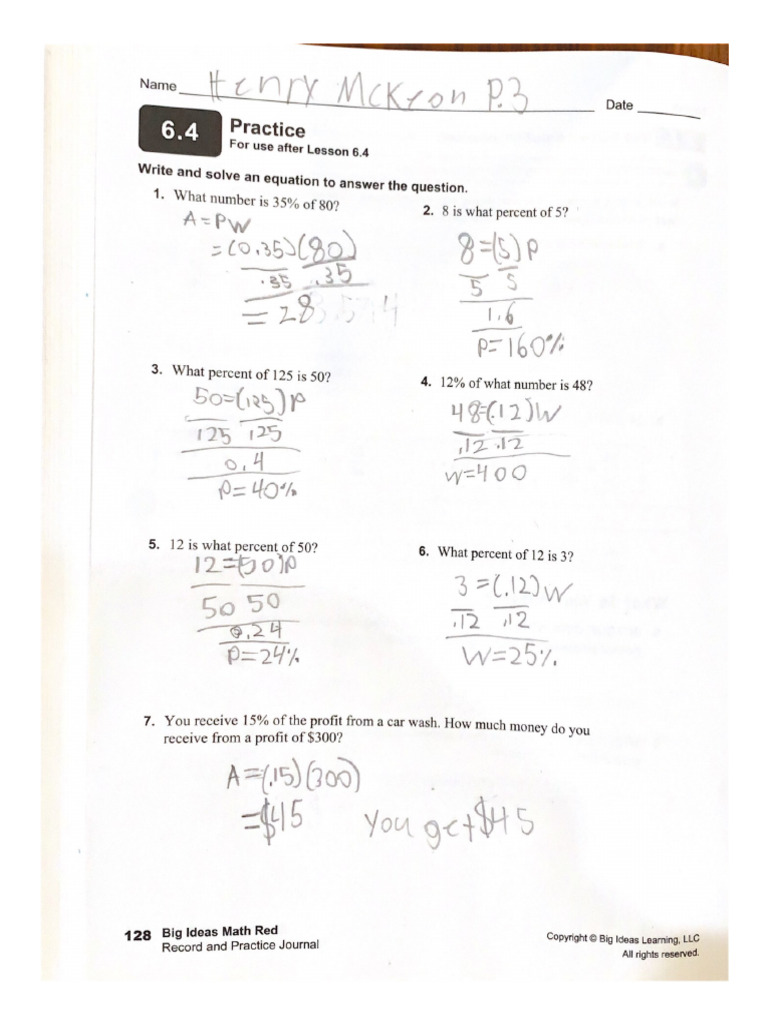 Name Henry McKeon P.3 Date
6.4 Practice
For use after Lesson 6.4
Write and solve an equation to answer the question.
1. What number is 35% of 80?
A=PW
=(0.35)(80)
.35 .35
=28
2. 8 is what percent of 5?
8=(5)P
5 5
1.6
P=160%
3. What percent of 125 is 50?
50=(125)P
125 125
0.4
P=40%
4. 12% of what number is 48?
48=(.12)W
.12 .12
W=400
5. 12 is what percent of 50?
12=(50)P
50 50
0.24
P=24%
6. What percent of 12 is 3?
3=(.12)W
.12 .12
W=25%
7. You receive 15% of the profit from a car wash. How much money do you
receive from a profit of $300?
A=(.15)(300)
=$45 You get $45
128 Big Ideas Math Red
Record and Practice Journal
Copyright © Big Ideas Learning, LLC
All rights reserved.